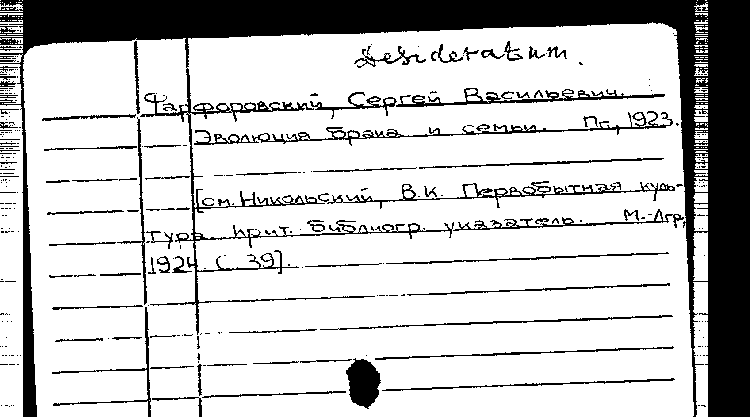 Desideratum.
Фарфоровский, Сергей Васильевич.
Эволюция брака и семьи. Пг., 1923.
[см. Никольский, В.К. Первобытная куль-
тура. Крит. библиогр. указатель. М.-Лгр,
1924. С. 39].